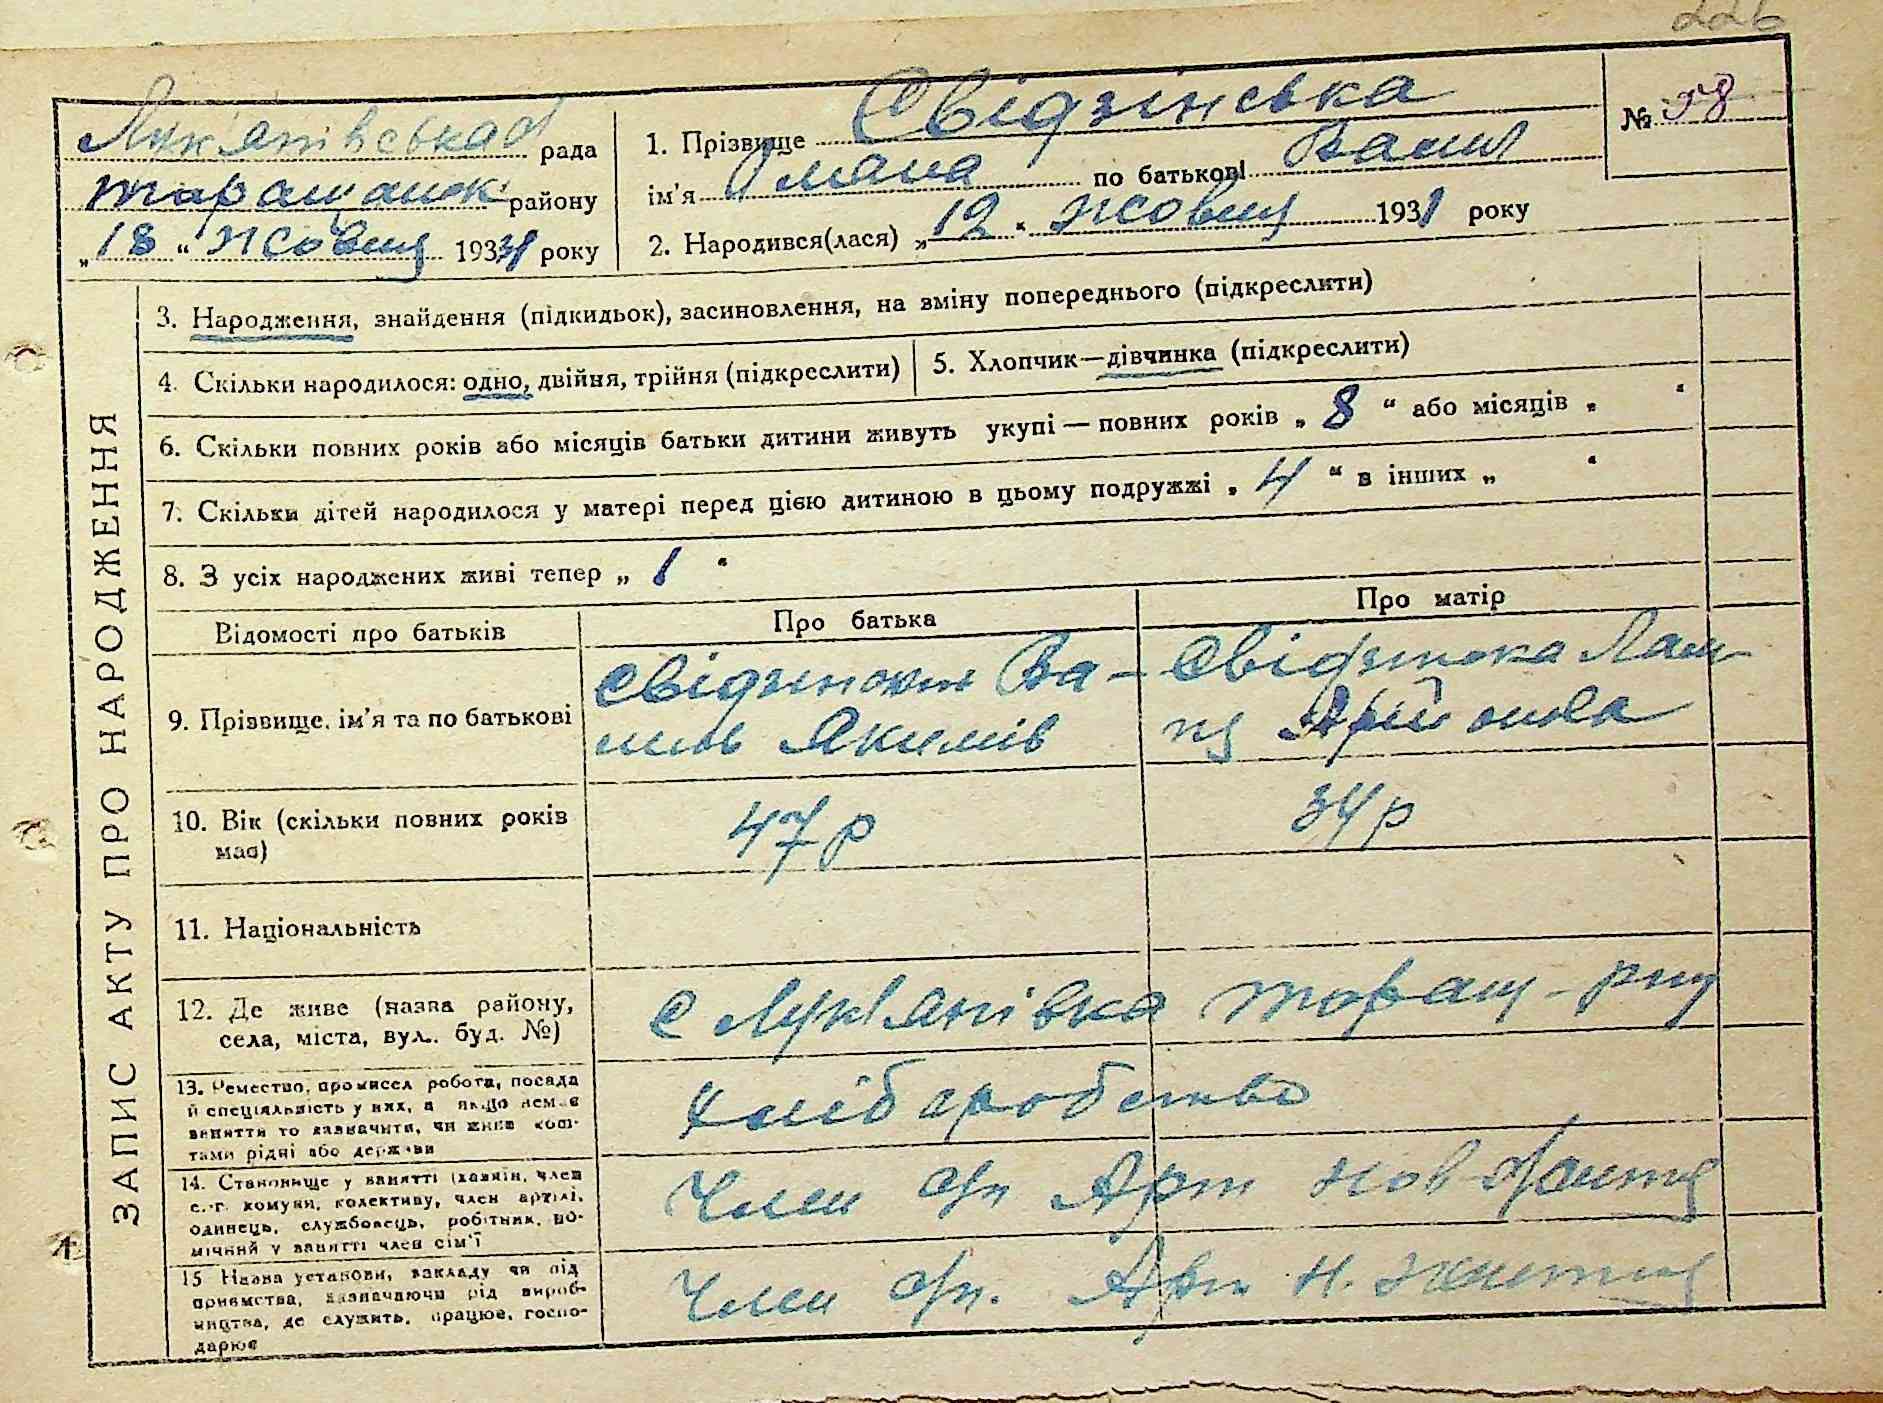 226
Лук'янівська рада
Таращанськ району
„18“ жовтня 1931 року
1. Прізвище Свідзінська
ім'я по батькові Васил
2. Народився(лася) „12“ жовтня 1931 року
№ 98
ЗАПИС АКТУ ПРО НАРОДЖЕННЯ
3. Народження, знайдення (підкидьок), засиновлення, на зміну попереднього (підкреслити)
4. Скільки народилося: одно, двійня, трійня (підкреслити)
5. Хлопчик—дівчинка (підкреслити)
6. Скільки повних років або місяців батьки дитини живуть укупі — повних років „8“ або місяців „ “
7. Скільки дітей народилося у матері перед цією дитиною в цьому подружжі „4“ в інших „ “
8. З усіх народжених живі тепер „1“
Відомості про батьків
Про батька
Про матір
9. Прізвище, ім'я та по батькові
Свідзинский Ва-
силь Якимів
Свідзинська
10. Вік (скільки повних років
має)
47 р
34 р
11. Національність
12. Де живе (назва району,
села, міста, вул. буд. №)
с Лук'янівка Таращ-рну
13. Ремество, промисел робота, посада
й спеціяльність у них, а якщо немає
заняття то зазначити, чи живе кош-
тами рідні або держави
Хліборобство
14. Становище у занятті (хазяїн, член
с.-г. комуни, колективу, член артілі,
одинець, службовець, робітник, по-
мічний у занятті член сім'ї
Член Арт Нов
15 Назва установи, закладу чи під
приємства, зазначаючи рід вироб-
ництва, де служить, працює, госпо-
дарює
Член Арт Н. життя